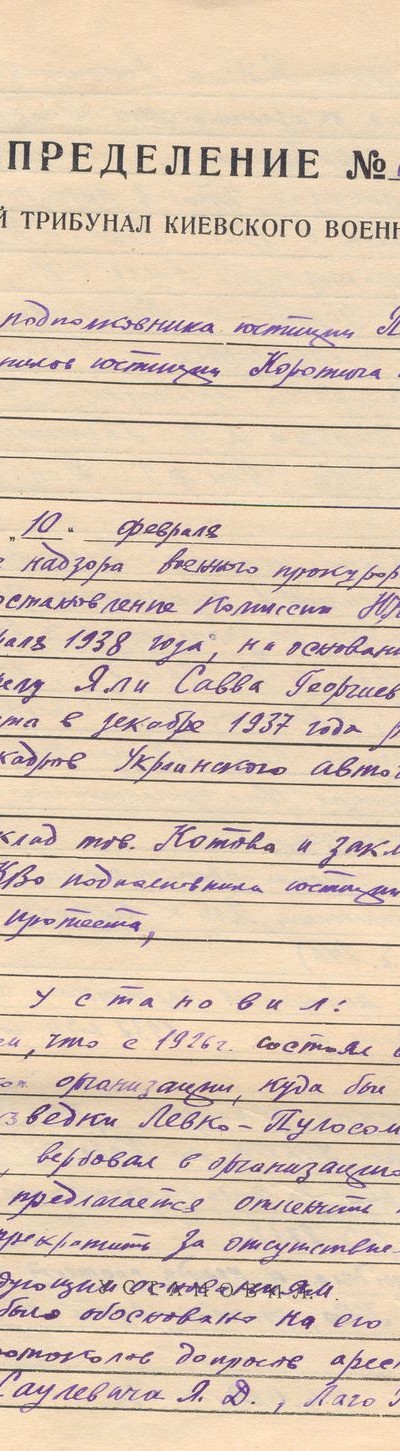 ПРЕДЕЛЕНИЕ №
Й ТРИБУНАЛ КИЕВСКОГО ВОЕНН
подполковника юстиции П
ников юстиции Коротича
„10" февраля
надзора военного прокурор
остановление Комиссии НК
раля 1938 года, на основани
делу Яли Савва Георгиев
ста в декабре 1937 года
кадров Украинского авто
клад тов. Котова и закл
КВО подполковника юстиции
протеста,
Установил:
что с 1926г. состоял
организации, куда был
зведки Левко-Пулосом
вербовал в организацию
предлагается отменить
прекратить за отсутствие
дующим основаниям
УСТАНОВИЛ:
было обосновано на его
ротоколов допросов арест
Саулевича Я. Д., Лаго